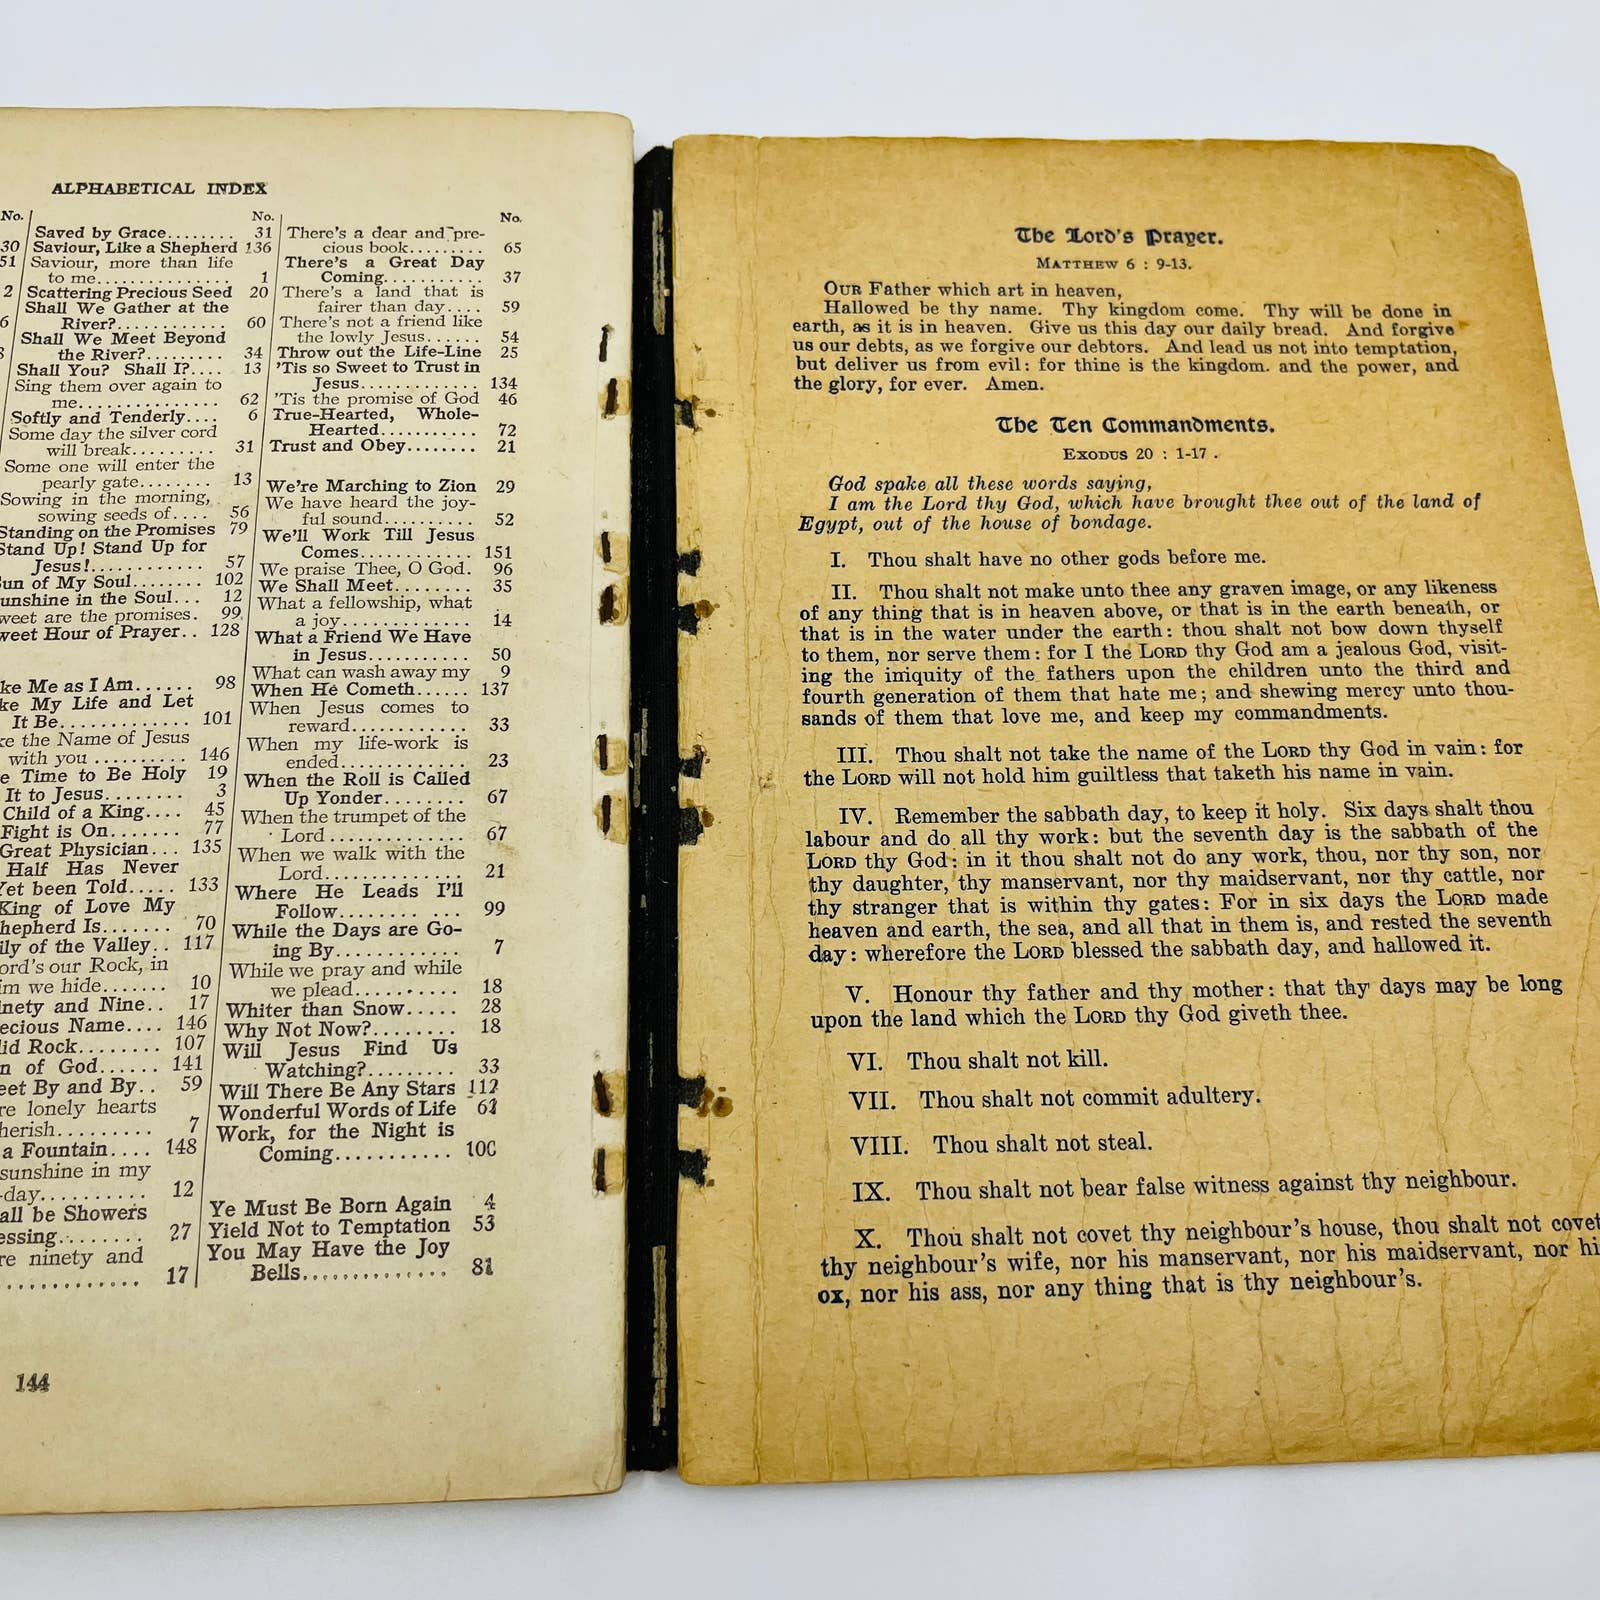 ALPHABETICAL INDEX
No.
30
51
2
6
8
No.
Saved by Grace........ 31
Saviour, Like a Shepherd 136
Saviour, more than life
to me............... 1
Scattering Precious Seed 20
Shall We Gather at the
River?............ 60
Shall We Meet Beyond
the River?......... 34
Shall You? Shall I?.... 13
Sing them over again to
me............... 62
Softly and Tenderly.... 6
Some day the silver cord
will break......... 31
Some one will enter the
pearly gate........ 13
Sowing in the morning,
sowing seeds of.... 56
Standing on the Promises 79
Stand Up! Stand Up for
Jesus!............ 57
un of My Soul........ 102
unshine in the Soul... 12
weet are the promises. 99
weet Hour of Prayer.. 128
ke Me as I Am...... 98
ke My Life and Let
It Be............. 101
ke the Name of Jesus
with you .......... 146
e Time to Be Holy 19
It to Jesus........ 3
Child of a King.... 45
Fight is On....... 77
Great Physician... 135
Half Has Never
Yet been Told..... 133
King of Love My
hepherd Is....... 70
ily of the Valley.. 117
ord's our Rock, in
im we hide....... 10
inety and Nine.. 17
ecious Name.... 146
lid Rock........ 107
n of God...... 141
eet By and By.. 59
re lonely hearts
herish.......... 7
a Fountain.... 148
sunshine in my
-day.......... 12
all be Showers
essing........ 27
re ninety and
............. 17
No.
There's a dear and pre-
cious book......... 65
There's a Great Day
Coming........... 37
There's a land that is
fairer than day.... 59
There's not a friend like
the lowly Jesus...... 54
Throw out the Life-Line 25
'Tis so Sweet to Trust in
Jesus............. 134
'Tis the promise of God 46
True-Hearted, Whole-
Hearted........... 72
Trust and Obey........ 21
We're Marching to Zion 29
We have heard the joy-
ful sound.......... 52
We'll Work Till Jesus
Comes............ 151
We praise Thee, O God. 96
We Shall Meet........ 35
What a fellowship, what
a joy............. 14
What a Friend We Have
in Jesus........... 50
What can wash away my 9
When He Cometh...... 137
When Jesus comes to
reward............ 33
When my life-work is
ended............. 23
When the Roll is Called
Up Yonder........ 67
When the trumpet of the
Lord ............. 67
When we walk with the
Lord.............. 21
Where He Leads I'll
Follow........ ... 99
While the Days are Go-
ing By............ 7
While we pray and while
we plead.......... 18
Whiter than Snow..... 28
Why Not Now?........ 18
Will Jesus Find Us
Watching?......... 33
Will There Be Any Stars 112
Wonderful Words of Life 61
Work, for the Night is
Coming........... 100
Ye Must Be Born Again 4
Yield Not to Temptation 53
You May Have the Joy
Bells.............. 81
144
The Lord's Prayer.
MATTHEW 6 : 9-13.
OUR Father which art in heaven,
Hallowed be thy name. Thy kingdom come. Thy will be done in
earth, as it is in heaven. Give us this day our daily bread. And forgive
us our debts, as we forgive our debtors. And lead us not into temptation,
but deliver us from evil: for thine is the kingdom. and the power, and
the glory, for ever. Amen.
The Ten Commandments.
EXODUS 20 : 1-17 .
God spake all these words saying,
I am the Lord thy God, which have brought thee out of the land of
Egypt, out of the house of bondage.
I. Thou shalt have no other gods before me.
II. Thou shalt not make unto thee any graven image, or any likeness
of any thing that is in heaven above, or that is in the earth beneath, or
that is in the water under the earth: thou shalt not bow down thyself
to them, nor serve them: for I the LORD thy God am a jealous God, visit-
ing the iniquity of the fathers upon the children unto the third and
fourth generation of them that hate me; and shewing mercy unto thou-
sands of them that love me, and keep my commandments.
III. Thou shalt not take the name of the LORD thy God in vain: for
the LORD will not hold him guiltless that taketh his name in vain.
IV. Remember the sabbath day, to keep it holy. Six days shalt thou
labour and do all thy work: but the seventh day is the sabbath of the
LORD thy God: in it thou shalt not do any work, thou, nor thy son, nor
thy daughter, thy manservant, nor thy maidservant, nor thy cattle, nor
thy stranger that is within thy gates: For in six days the LORD made
heaven and earth, the sea, and all that in them is, and rested the seventh
day: wherefore the LORD blessed the sabbath day, and hallowed it.
V. Honour thy father and thy mother: that thy days may be long
upon the land which the LORD thy God giveth thee.
VI. Thou shalt not kill.
VII. Thou shalt not commit adultery.
VIII. Thou shalt not steal.
IX. Thou shalt not bear false witness against thy neighbour.
X. Thou shalt not covet thy neighbour's house, thou shalt not covet
thy neighbour's wife, nor his manservant, nor his maidservant, nor hi
ox, nor his ass, nor any thing that is thy neighbour's.